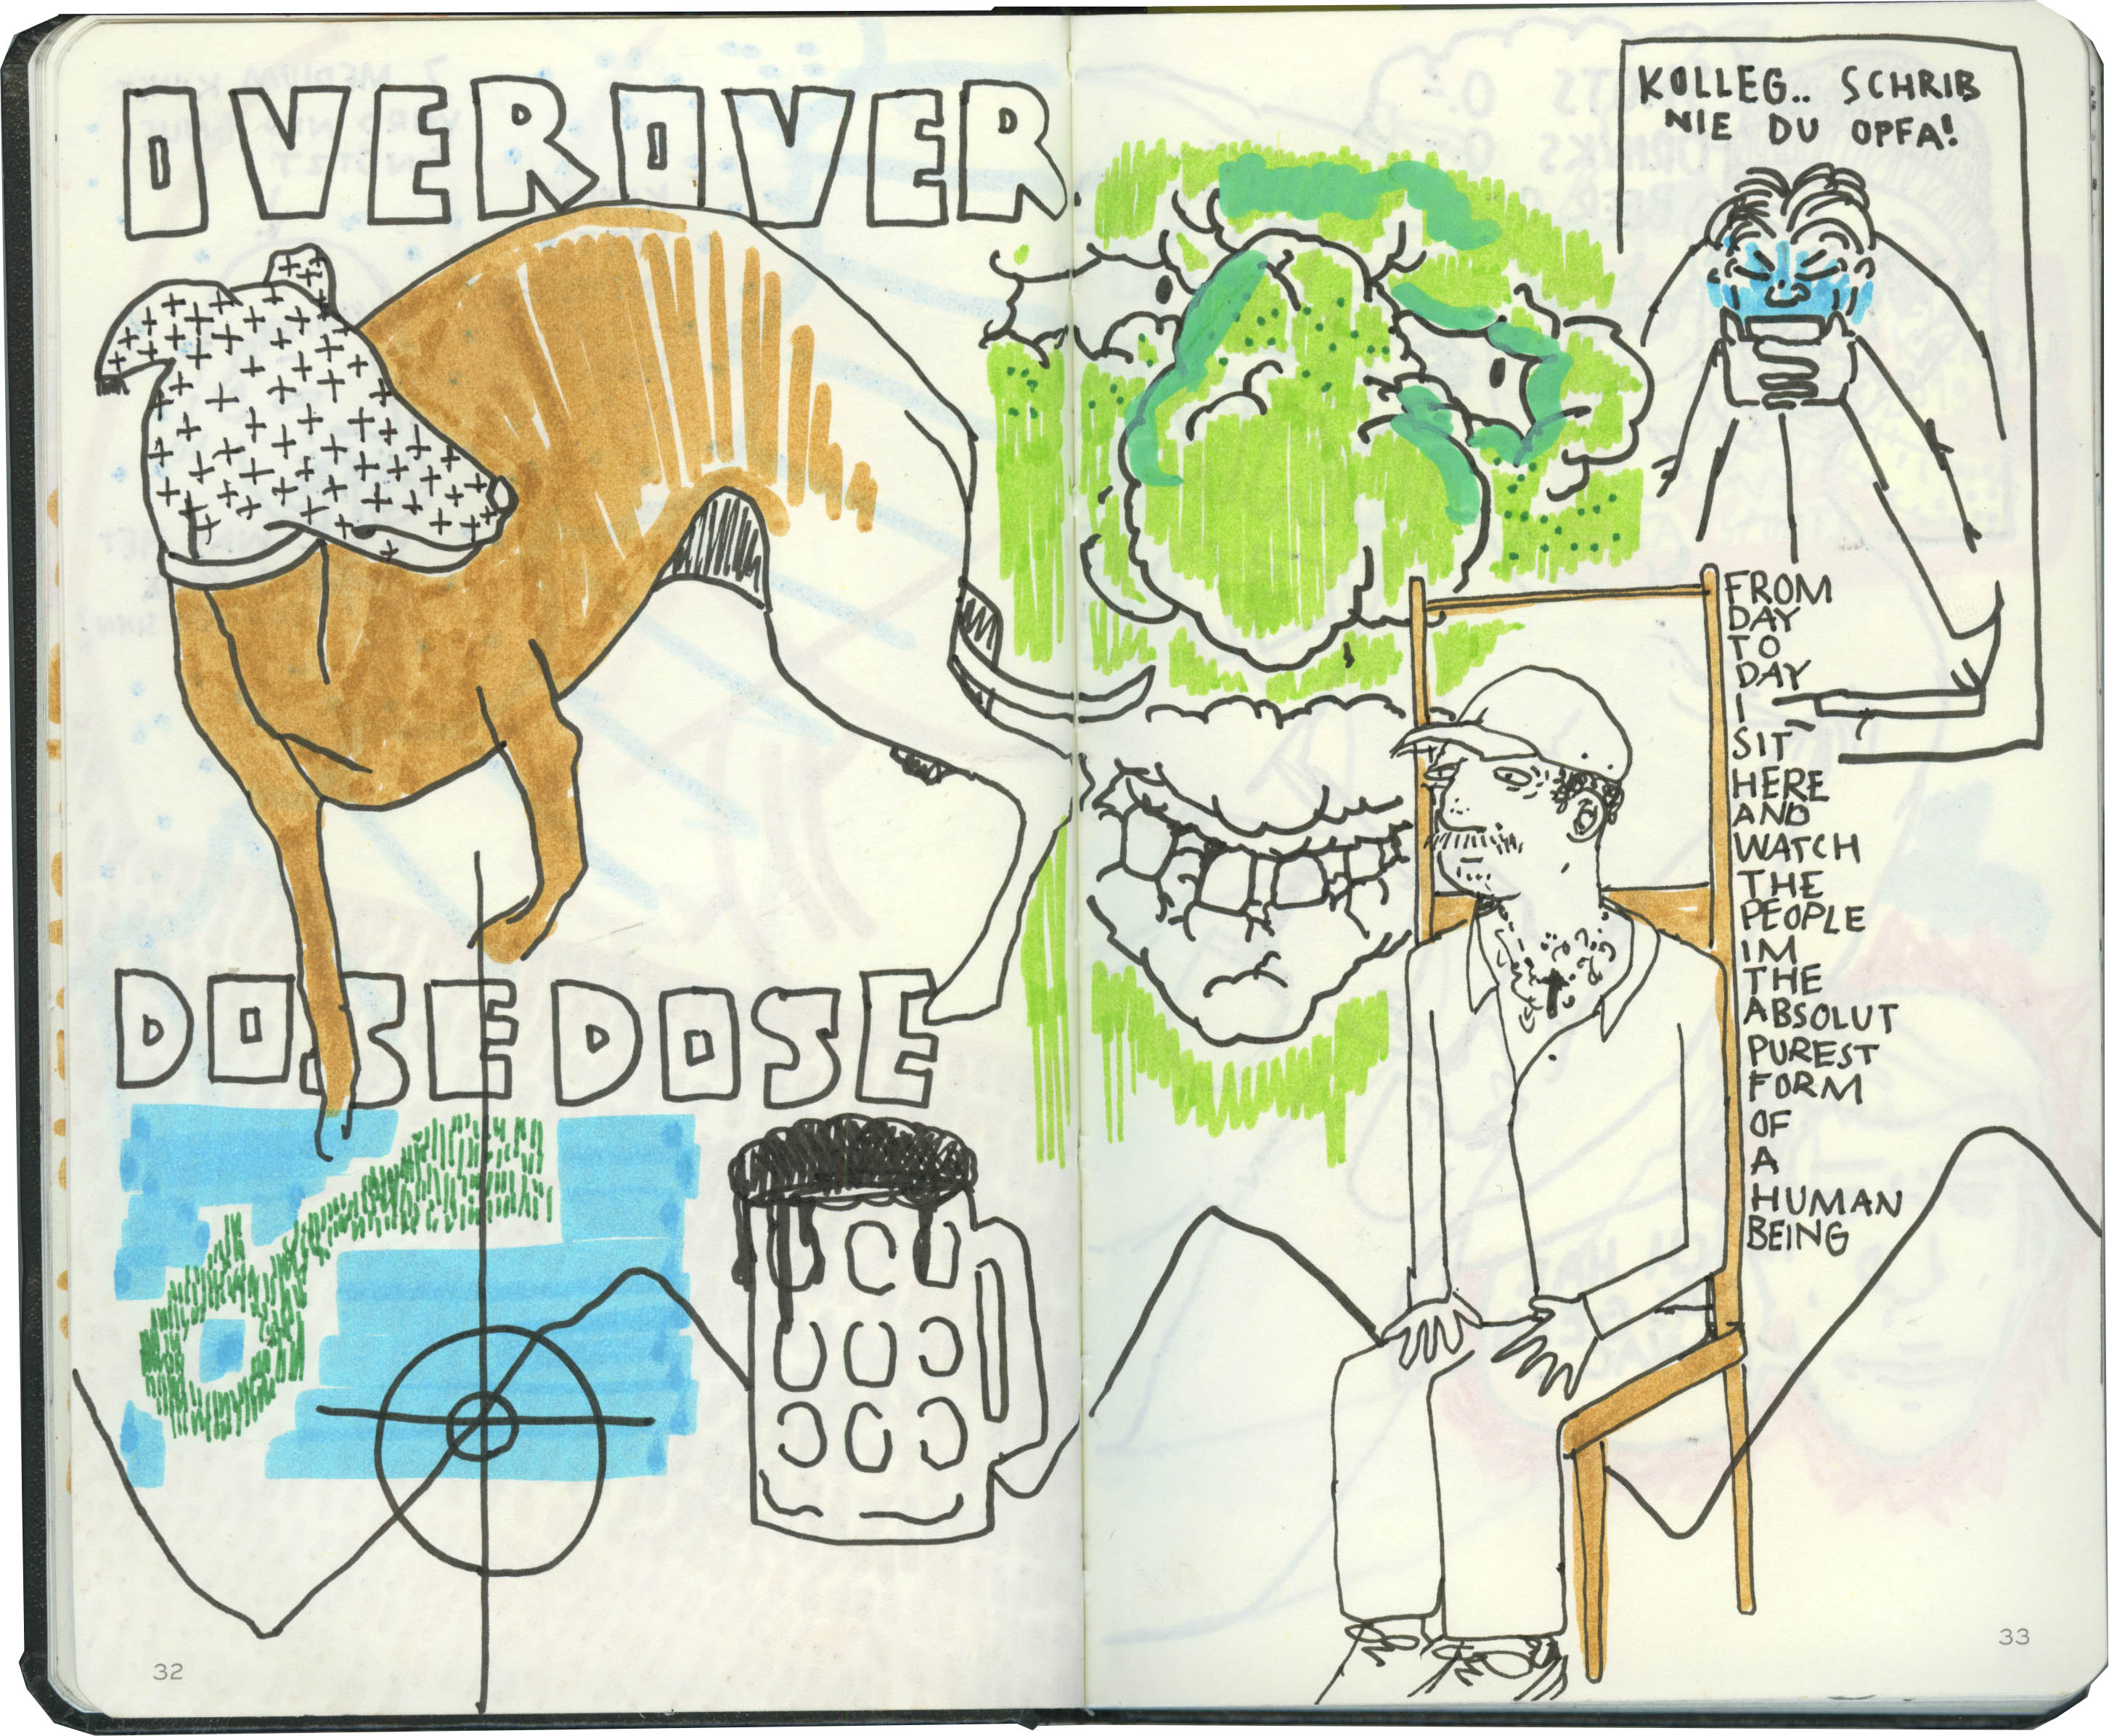 OVEROVER
DOSEDOSE
32
KOLLEG.. SCHRIB
NIE DU OPFA!
FROM
DAY
TO
DAY
I
SIT
HERE
AND
WATCH
THE
PEOPLE
IM
THE
ABSOLUT
PUREST
FORM
OF
A
HUMAN
BEING
33